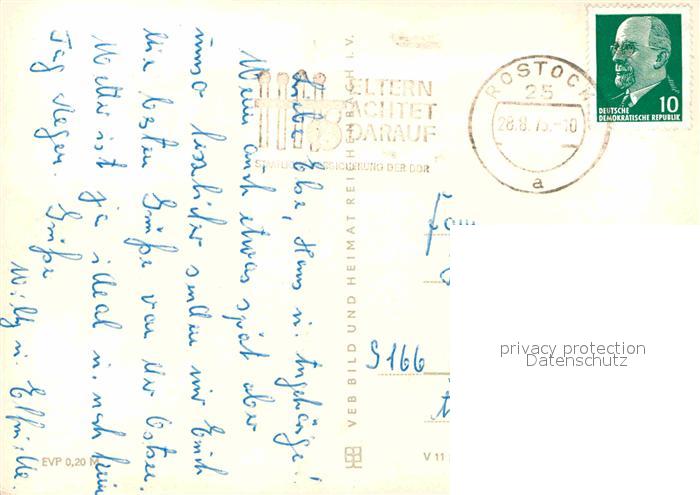 Liebe Elbe, Hans u. Angehörige!
Wenn auch etwas spät aber
umso herzlicher senden wir Euch
die besten Grüße von der Ostsee.
Wetter ist ja ideal u. noch kein
Tag Regen. Grüße
Willy u. Elfriede.
ELTERN
ACHTET
DARAUF
STAATLICHE VERSICHERUNG DER DDR
ROSTOCK
25
28.8.73.-10
a
10
DEUTSCHE
DEMOKRATISCHE REPUBLIK
VEB BILD UND HEIMAT REICHENBACH I. V.
Fam
9166
privacy protection
Datenschutz
EVP 0,20 M
V 11